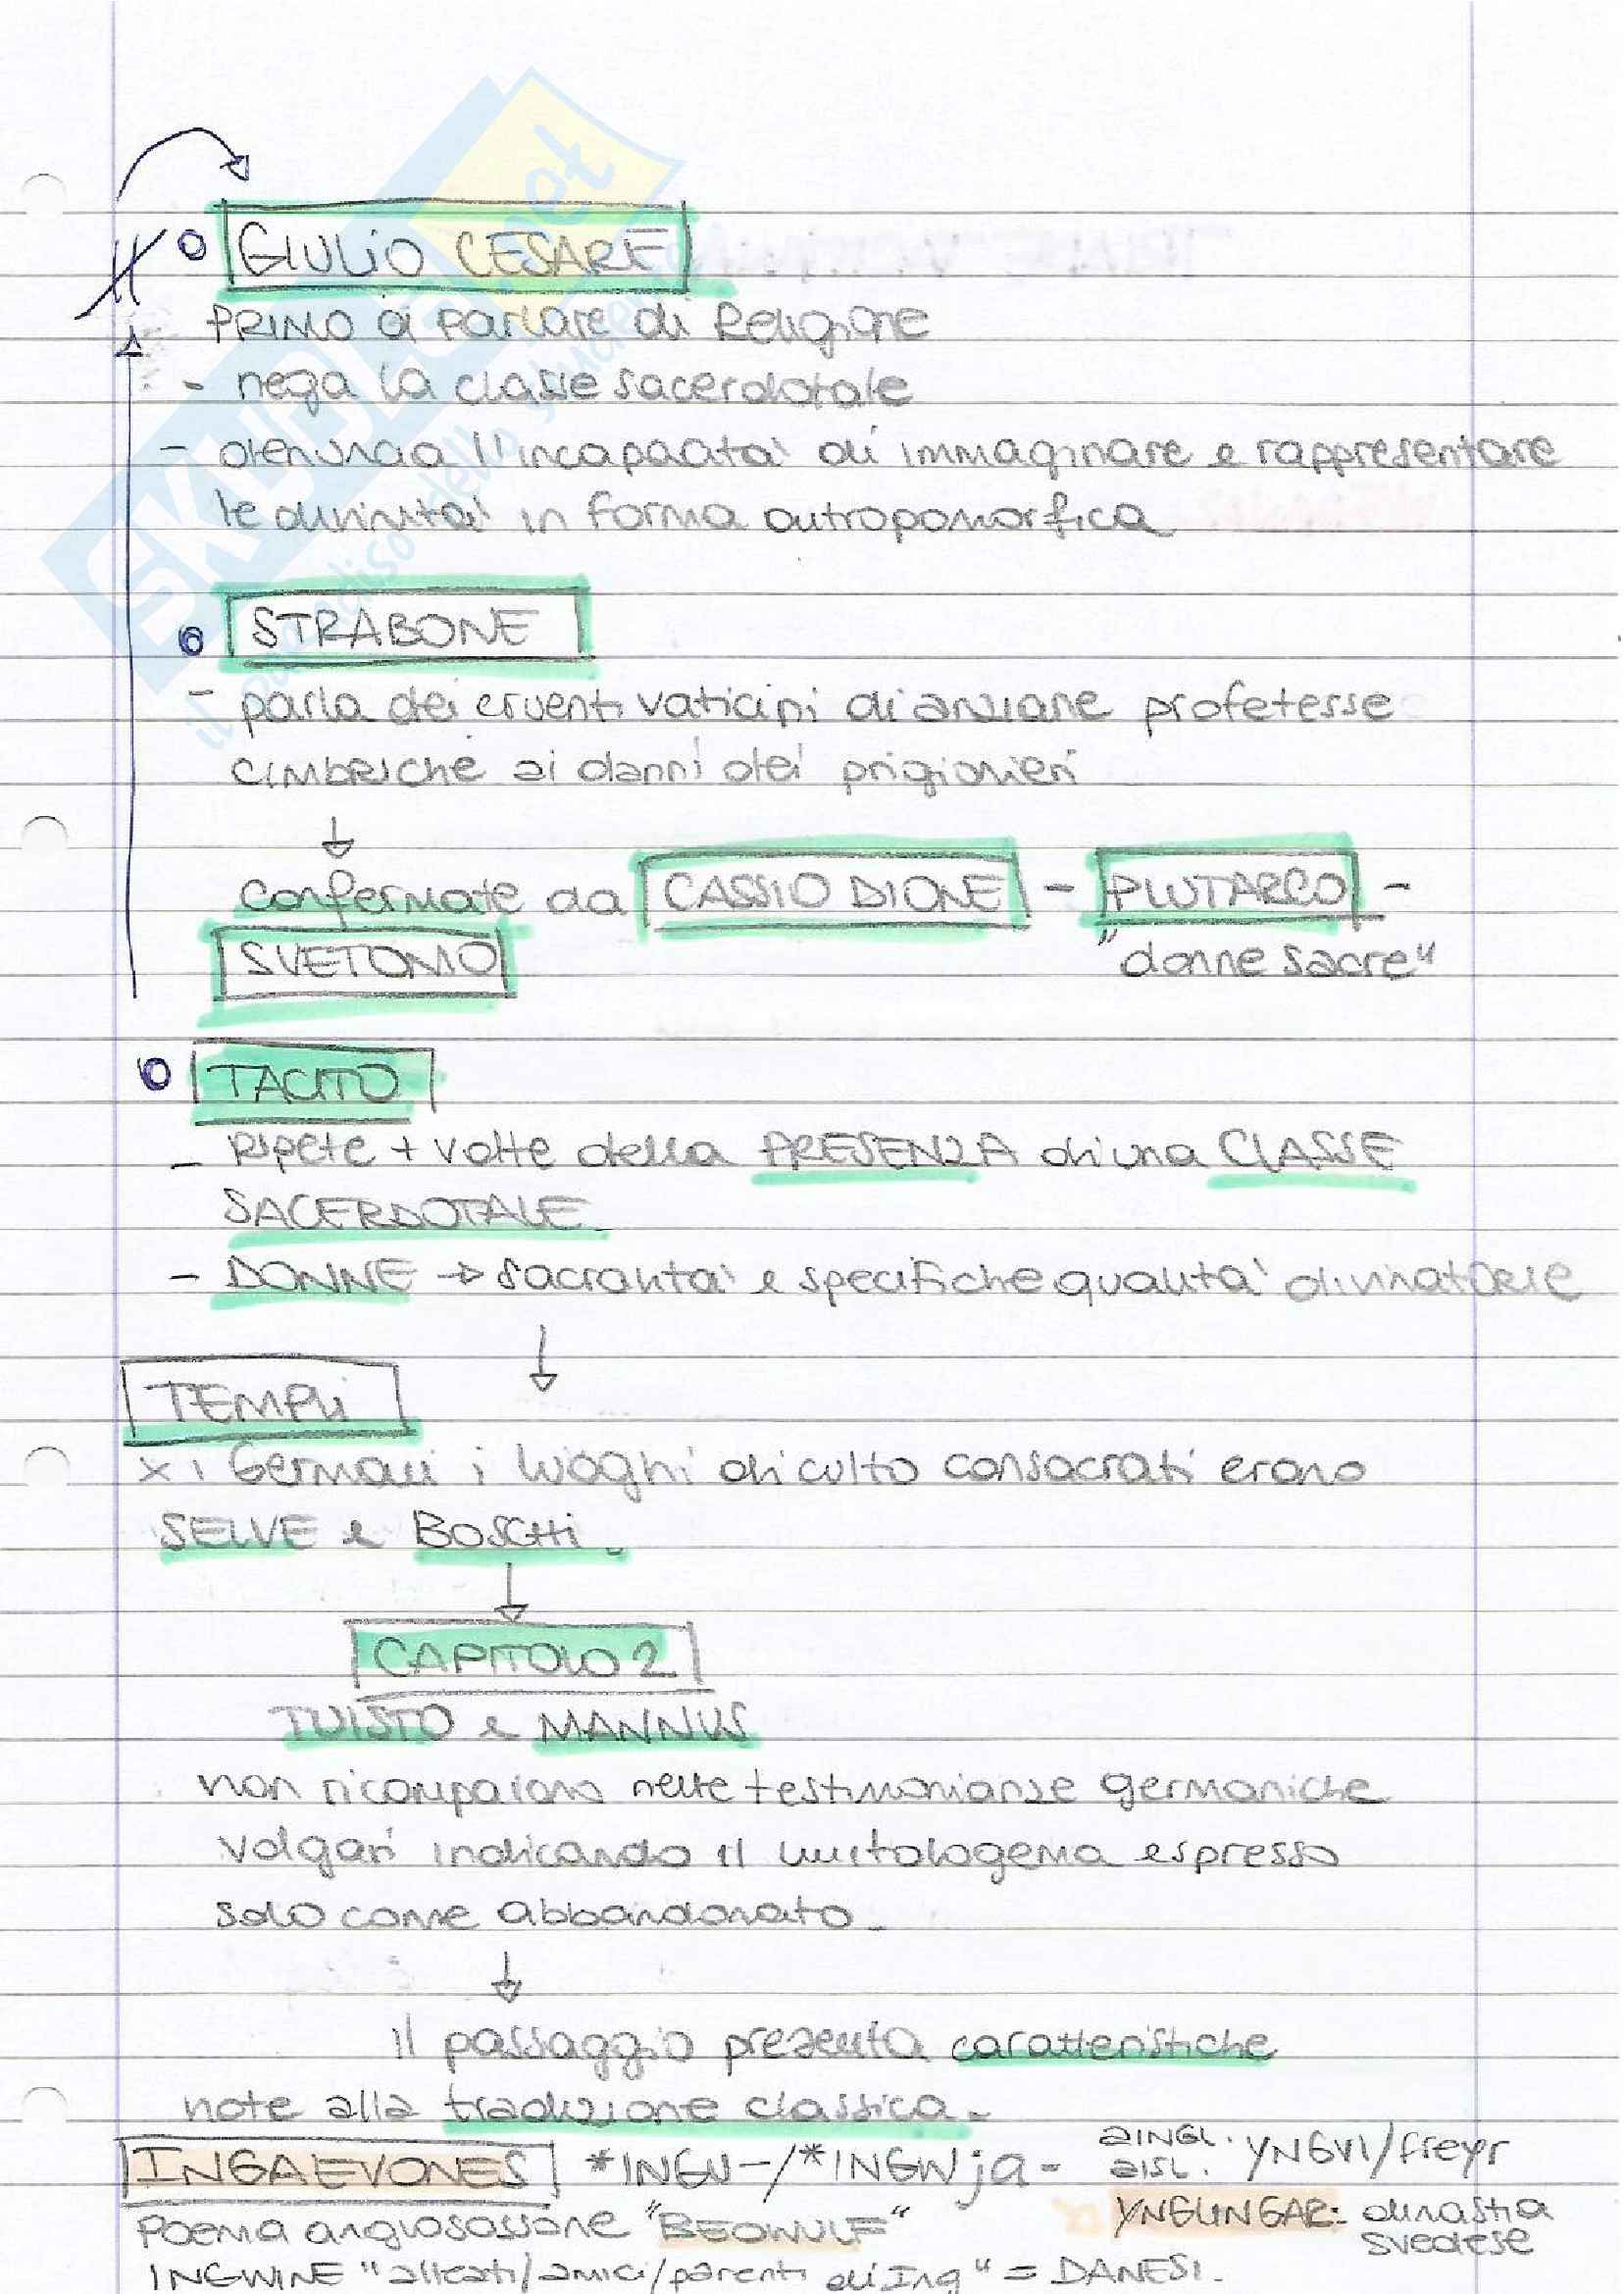 GIULIO CESARE
PRIMO a parlare di Religione
- nega la classe sacerdotale
- denuncia l'incapacità di immaginare e rappresentare
le divinità in forma antropomorfica
STRABONE
- parla dei cruenti vaticini di anziane profetesse
CIMBRICHE ai danni dei prigionieri
↓
confermate da CASSIO DIONE - PLUTARCO -
SVETONIO "donne sacre"
TACITO
- Ripete + volte della PRESENZA di una CLASSE
SACERDOTALE
- DONNE → sacralità e specifiche qualità divinatorie
↓
TEMPLI
x i Germani i luoghi di culto consacrati erano
SELVE e BOSCHI.
↓
CAPITOLO 2
TUISTO e MANNUS
non ricompaiono nelle testimonianze germaniche
volgari indicando il mitologema espresso
solo come abbandonato.
↓
il passaggio presenta caratteristiche
note alla tradizione classica.
INGAEVONES *INGU-/*INGWja- aINGL. aISL. YNGVI/freyr
YNGLINGAR: dinastia svedese
Poema anglosassone "BEOWULF"
INGWINE "alleati/amici/parenti di Ing" = DANESI.
SKUOLA.net
il paradiso dello studente